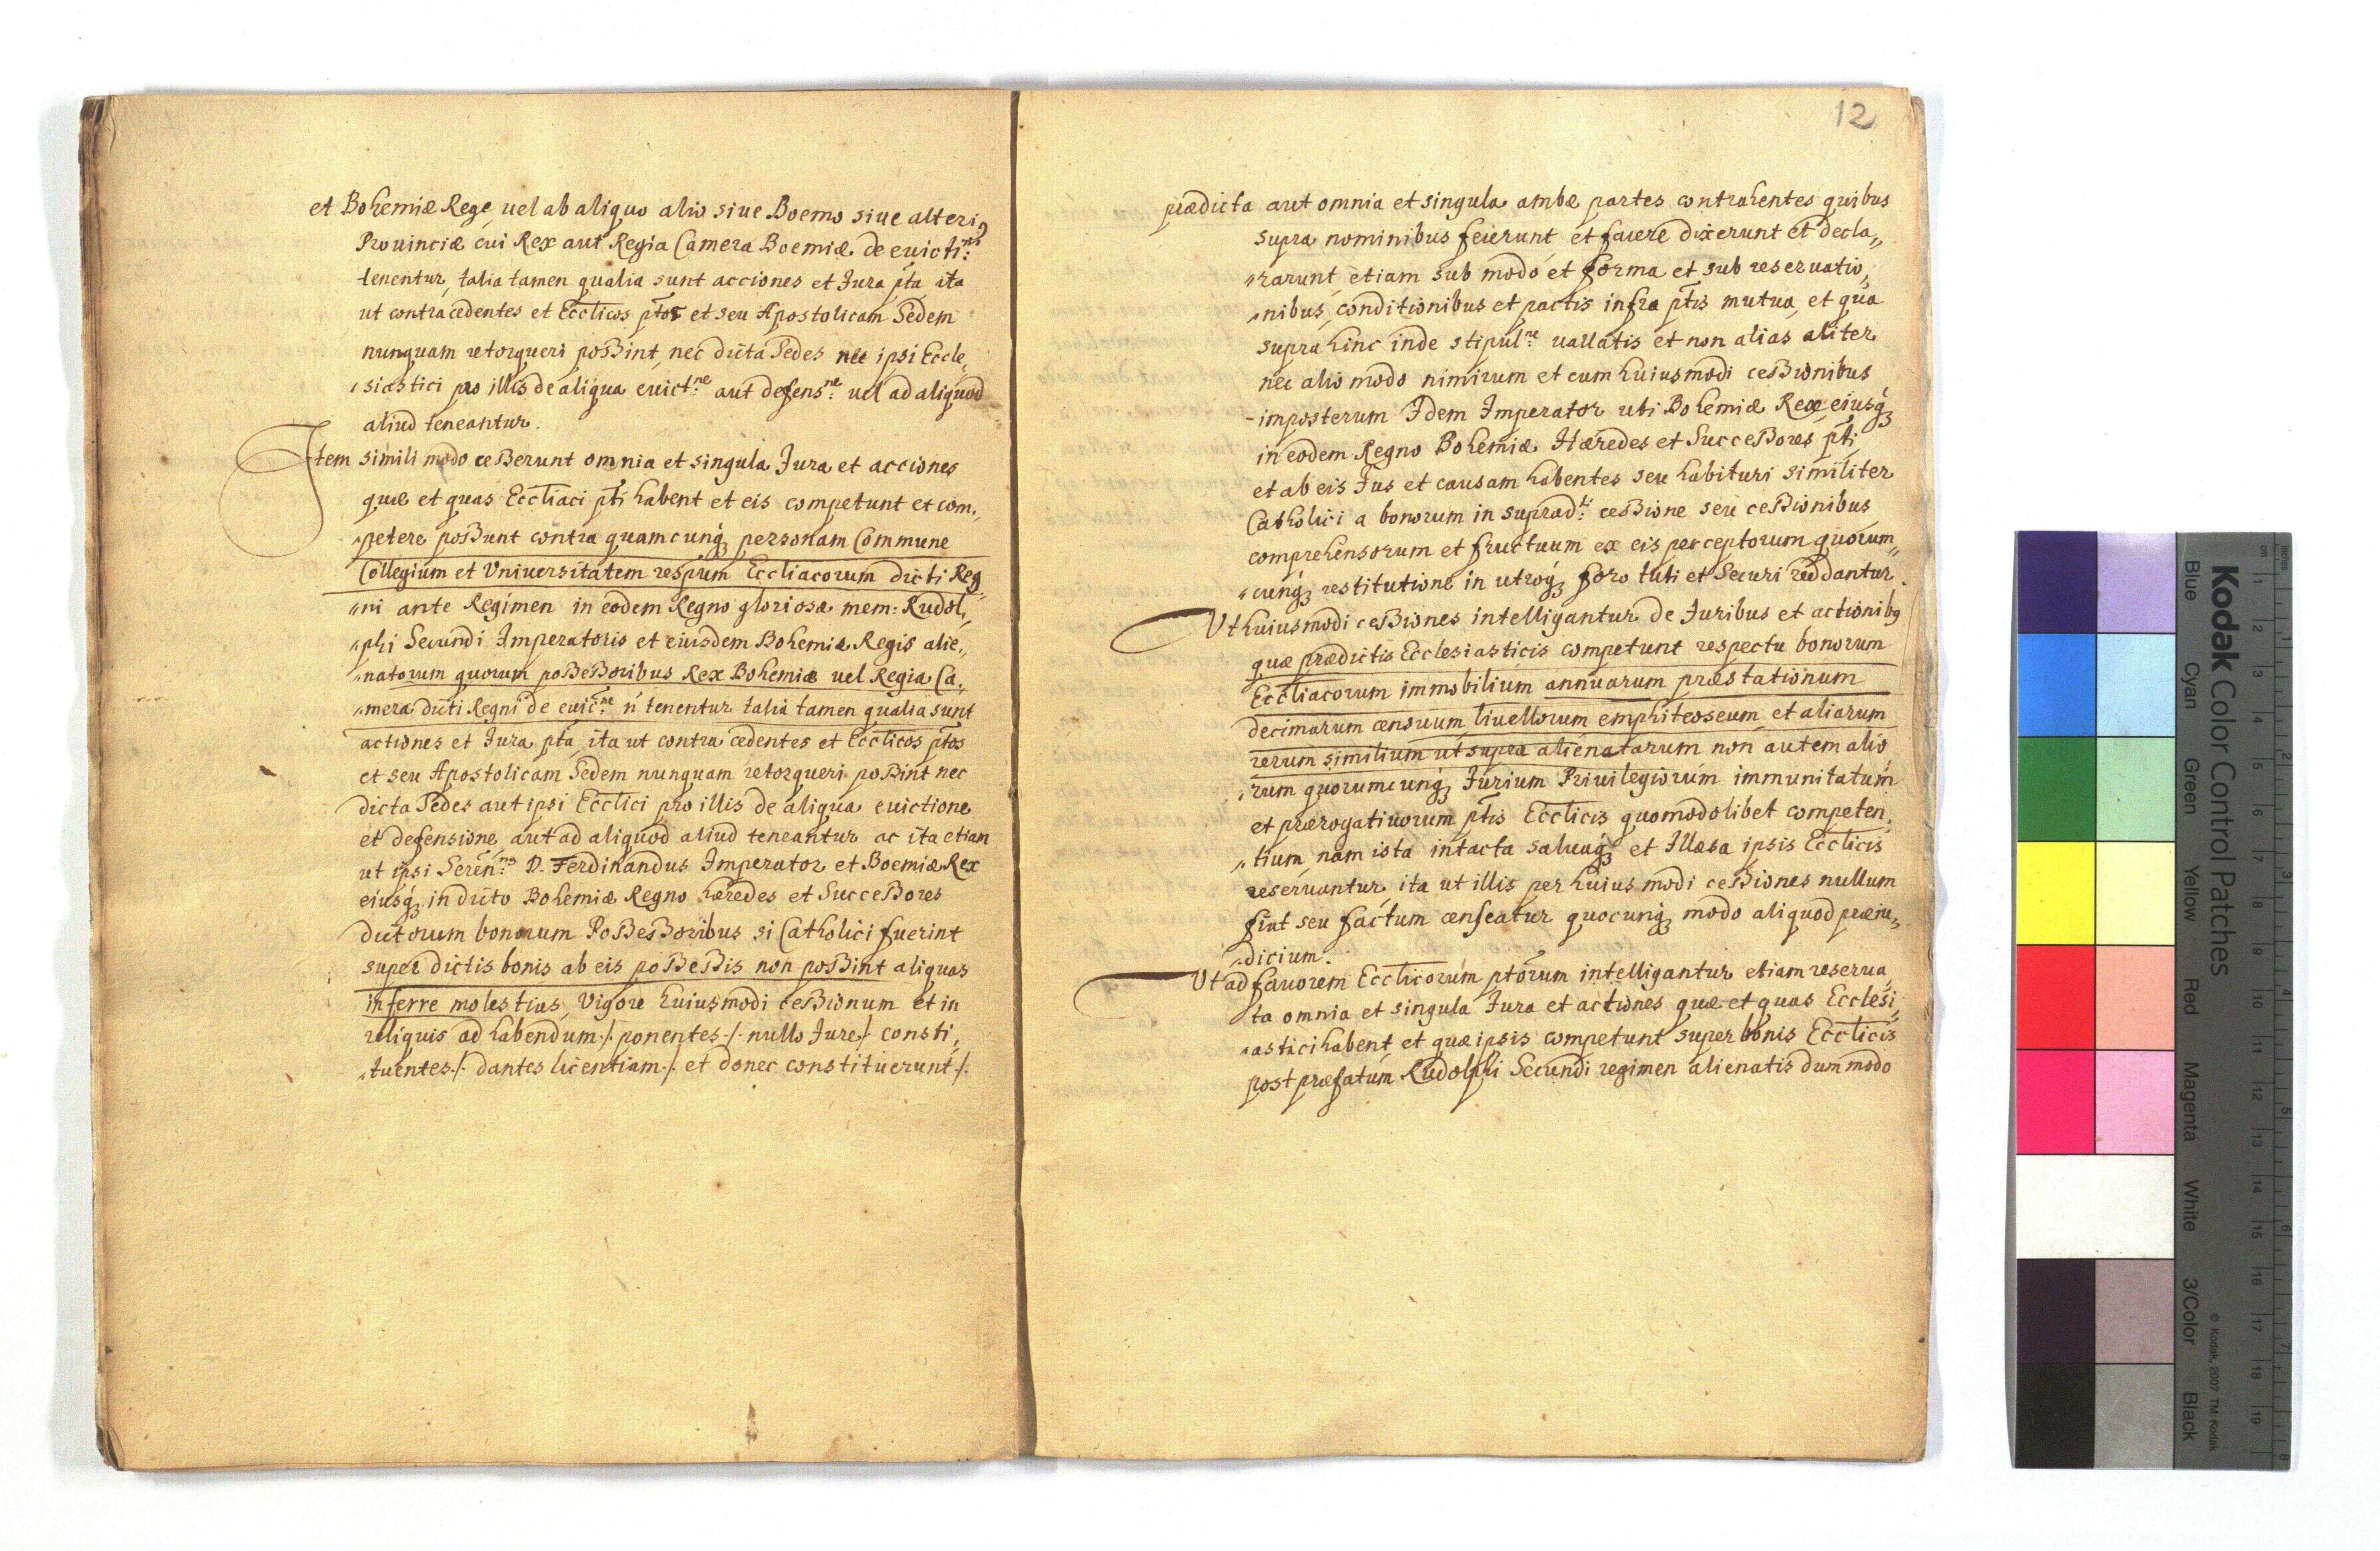 et Bohemiæ Rege uel ab aliquo alio siue Boemo siue alteri9
Prouinciæ cui Rex aut Regia Camera Boemiæ de euicti:ne
tenentur, talia tamen qualia sunt acciones et Jura pta ita
ut contra cedentes et Eccticos ptos et seu Apostolicam Sedem
nunquam retorqueri poßint, nec dicta Sedes nec ipsi Eccle„
„siastici pro illis de aliqua euict:ne aut defens:ne uel ad aliquod
aliud teneantur.
Item simili modo ceßerunt omnia et singula Jura et acciones
quæ et quas Ecctiaci pti habent et eis competunt et com„
„petere poßunt contra quamcunq; personam Commune
Collegium et Vniuersitatem respum Ecctiacorum dicti Reg„
„ni ante Regimen in eodem Regno gloriosæ mem: Rudol„
„phi Secundi Imperatoris et eiusdem Bohemiæ Regis alie„
„natorum quorum poßeßoribus Rex Bohemiæ uel Regia Ca„
„mera dicti Regni de euic:ne ń tenentur talia tamen qualia sunt
actiones et Jura pta ita ut contra cedentes et Eccticos ptos
et seu Apostolicam Sedem nunquam retorqueri poßint nec
dicta Sedes aut ipsi Ecctici pro illis de aliqua euictione
et defensione, aut ad aliquod aliud teneantur ac ita etiam
ut ipsi Seren:mo D. Ferdinandus Imperator et Boemiæ Rex
eiusq; in dicto Bohemiæ Regno hæredes et Succeßores
dictorum bonorum Poßeßoribus si Catholici fuerint
super dictis bonis ab eis poßeßis non poßint aliquas
inferre molestias, Vigore huiusmodi ceßionum et in
reliquis ad habendum ./. ponentes ./. nullo Jure ./. consti„
„tuentes ./. dantes licentiam ./. et donec constituerunt ./.
12
prædicta aut omnia et singula ambæ partes contrahentes quibus
supra nominibus fecerunt et facere dixerunt et decla„
„rarunt etiam sub modo et forma et sub reseruatio„
„nibus, conditionibus et pactis infra ptis mutua, et qua
supra hinc inde stipul:ne uallatis et non alias aliter
nec alio modo nimirum et cum huiusmodi ceßionibus
imposterum Idem Imperator uti Bohemiæ Rex eiusq;
in eodem Regno Bohemiæ Hæredes et Succeßores pti
et ab eis Jus et causam habentes seu habituri similiter
Catholici a bonorum in suprad:ti ceßione seu ceßionibus
comprehensorum et fructuum ex eis perceptorum quorum„
„cunq; restitutione in utroq; foro tuti et Securi reddantur.
Vt huiusmodi ceßiones intelligantur de Juribus et actionib9
quæ prædictis Ecclesiasticis competunt respectu bonorum
Ecctiacorum immobilium annuarum præstationum
decimarum censuum liuellorum emphiteoseum et aliarum
rerum similium ut supra alienatarum non autem alio„
„rum quorumcunq; Jurium Priuilegiorum immunitatum
et prærogatiuorum ptis Eccticis quomodolibet competen„
„tium nam ista intacta saluaq; et Illæsa ipsis Eccticis
reseruantur ita ut illis per huius modi ceßiones nullum
fiat seu factum censeatur quocunq; modo aliquod præiu„
„dicium.
Vt ad fauorem Eccticorum ptorum intelligantur etiam reserua„
ta omnia et singula Jura et actiones quæ et quas Ecclesi„
„astici habent, et quæ ipsis competunt super bonis Eccticis
post præfatum Rudolphi Secundi regimen alienatis dummodo
Kodak Color Control Patches
© Kodak, 2007 TM: Kodak
Blue
Cyan
Green
Yellow
Red
Magenta
White
3/Color
Black